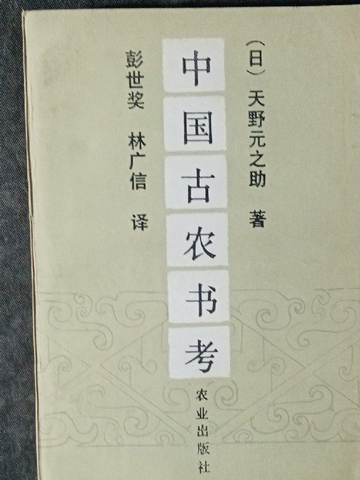 （日）天野元之助 著
中国古农书考
彭世奖 林广信 译
农业出版社